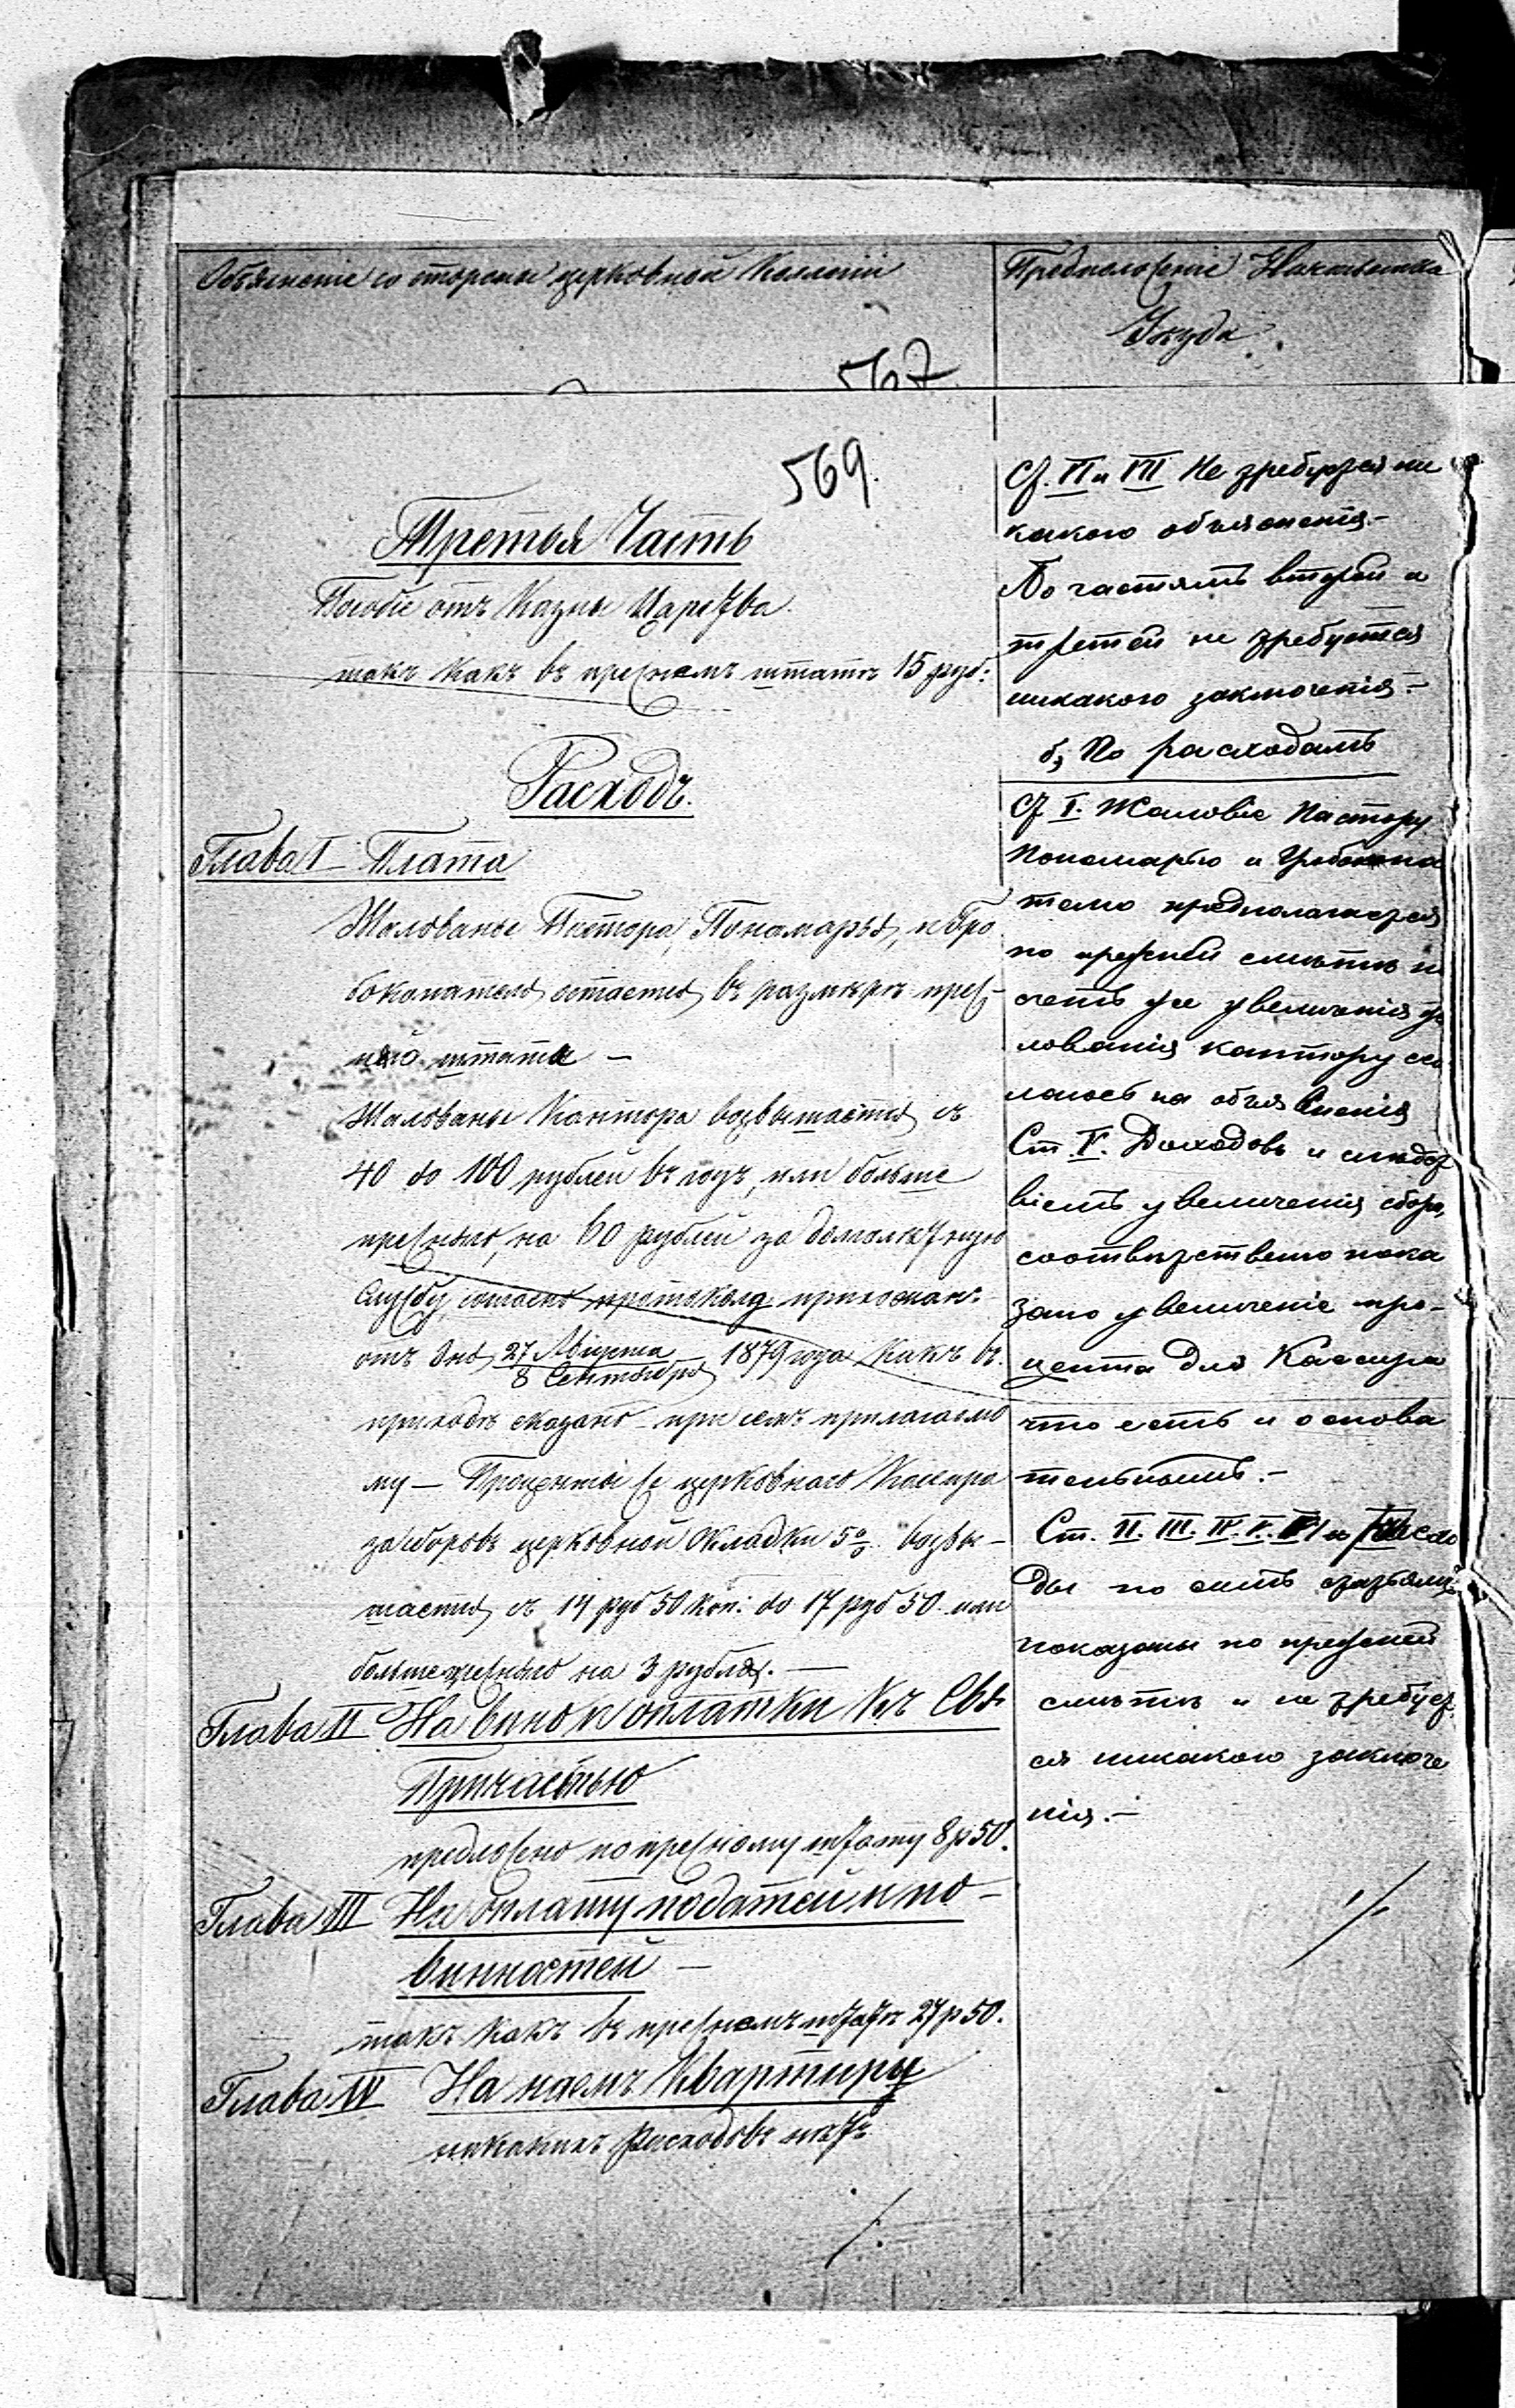 Объясненіе со стороны церковной Коллегіи
567
569.
Третья Часть
Пособіе отъ Казны Царства
такъ какъ въ прежнемъ штатѣ 15 руб:
Расходъ.
Глава I Плата
Жалованье Пастора, Пономаря, и Гро
бокопателя остается въ размѣрѣ преж-
няго штата —
Жалованье Кантора возвышается съ
40 до 100 рублей въ годъ, или больше
прежняго, на 60 рублей за
службу, согласно протокола прихожанъ
отъ дня 27 Августа 1879 года Какъ въ
8 Сентября
приходѣ сказано при семъ прилагаемо
му — Проценты же церковнаго Кассира
за сборовъ церковной Складки 5% возвы-
шается съ 14 руб 50 коп: до 17 руб 50 или
больше прежняго на 3 рубля. —
Глава II На вино и оплатки къ Свя
Причастью
предложено по прежнему штату 8 р 50.
Глава III На оплату податей и по-
винностей —
такъ какъ въ прежнемъ штатѣ 27 р 50.
Глава IV На наемъ Квартиры
никакихъ расходовъ нѣтъ
Предположеніе Начальника
Уѣзда
Ст. VI и VII Не требуется ни
какого объясненія.—
По частямъ второй и
третей не требуется
никакого заключенія.—
б, По расходамъ
Ст I. Жаловіе Пастору
Пономарю и Гробокопа
телю предполагается
по прежней смѣтѣ
счетъ же увеличенія жа
лованія кантору ссы
лаюсь на объясненія
Ст. V. Доходовъ и слѣдст
віемъ увеличенія сбора,
соотвѣтственно пока
зано увеличеніе про-
цента для Кассира
что есть и основа
тельнымъ.—
Ст. II. III. IV. V. VI и
ды по симъ статьямъ
показаны по прежней
смѣтѣ и не требует
ся никакого заключе
нія.—